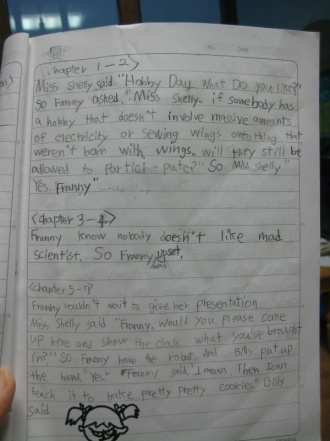 <Chapter 1-2>
Miss Shelly said "Hobby Day. What Do you like?"
So Franny asked, "Miss Shelly. if somebody has
a hobby that doesn't involve massive amounts
of electricity or sewing wings onto thing that
weren't born with wings. will they still be
allowed to partici-pate?" So Miss shelly"
Yes. Franny"
<chapter 3-4>
Franny know nobody doesn't like mad
scientist. So Franny upset.
<chapter 5-
Franny couldn't wait to give her presentation.
Miss Shelly said "Franny, would you please come
up here and show the class what you've brought
in?" So Franny have the robot. And Billy put up
the hand. "Yes." Franny said. "I mean, Then I can
teach it to bake pretty Pretty cookies" Billy
said